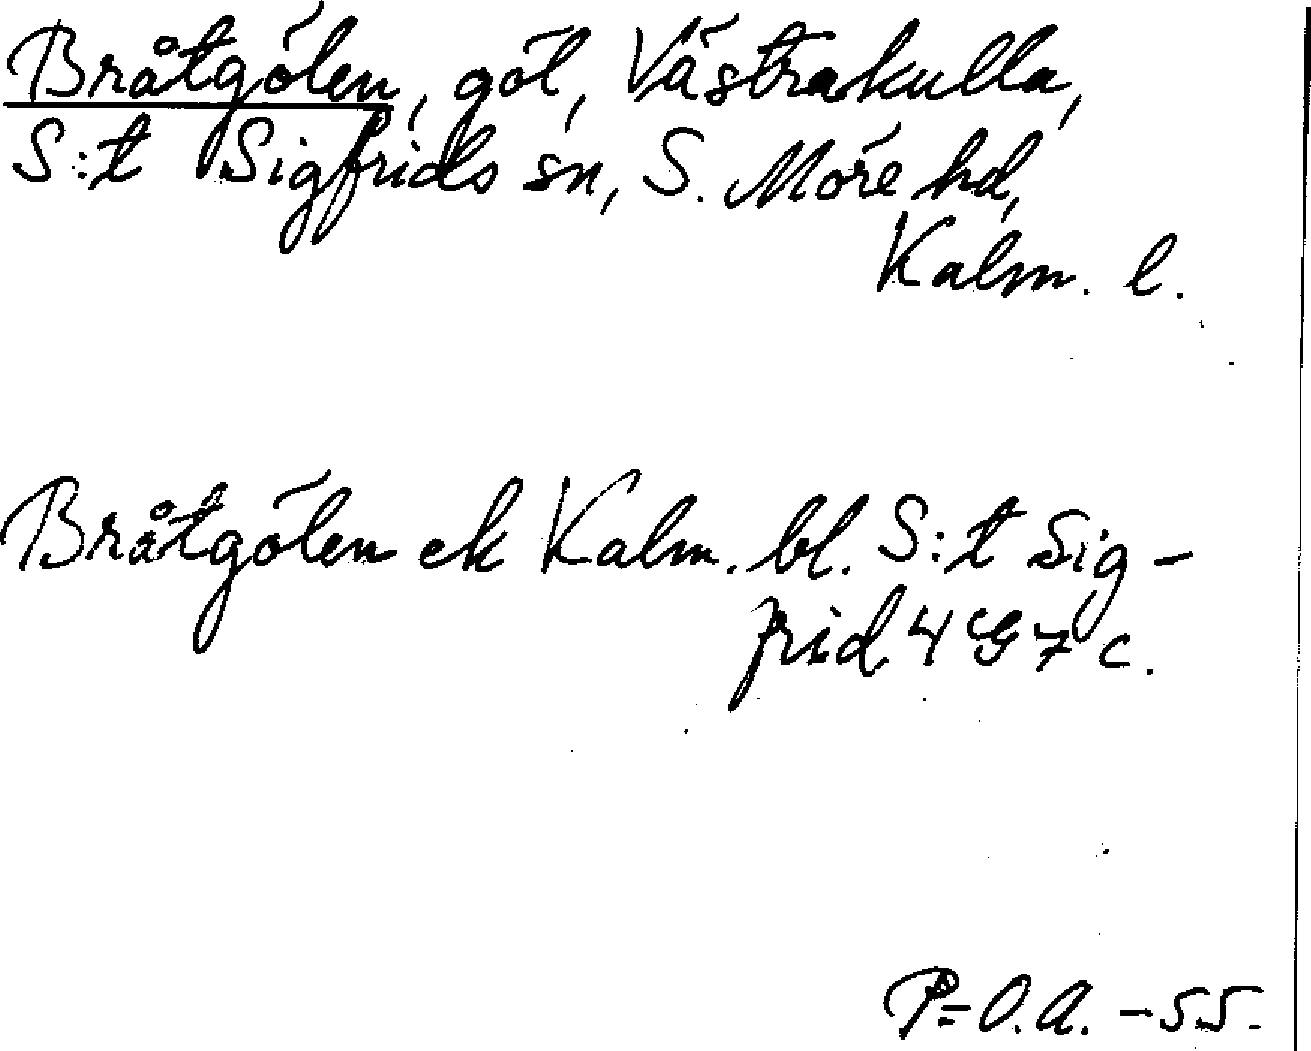 Bråtgölen, göl, Västrakulla,
S:t Sigfrids sn, S. Möre hd,
Kalm. l.
Bråtgölen ek Kalm. bl. S:t Sig-
frid 4G7c.
P=O.A. -55.